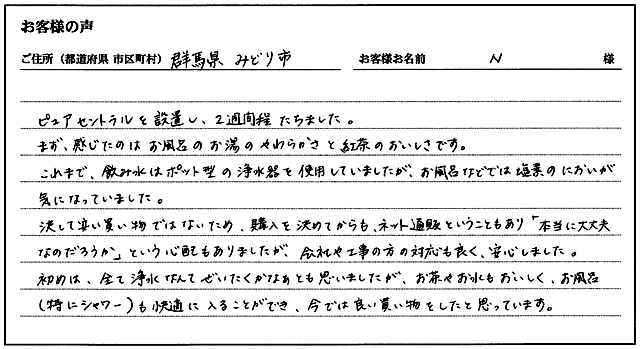 お客様の声
ご住所（都道府県 市区町村） 群馬県 みどり市 お客様お名前 N 様
ピュアセントラルを設置し、2週間程たちました。
まず、感じたのはお風呂のお湯のやわらかさと紅茶のおいしさです。
これまで、飲み水はポット型の浄水器を使用していましたが、お風呂などでは塩素のにおいが
気になっていました。
決して安い買い物ではないため、購入を決めてからも、ネット通販ということもあり「本当に大丈夫
なのだろうか」という心配もありましたが、会社や工事の方の対応も良く、安心しました。
初めは、全て浄水なんてぜいたくかなぁとも思いましたが、お茶やお水もおいしく、お風呂
(特にシャワー)も快適に入ることができ、今では良い買い物をしたと思っています。